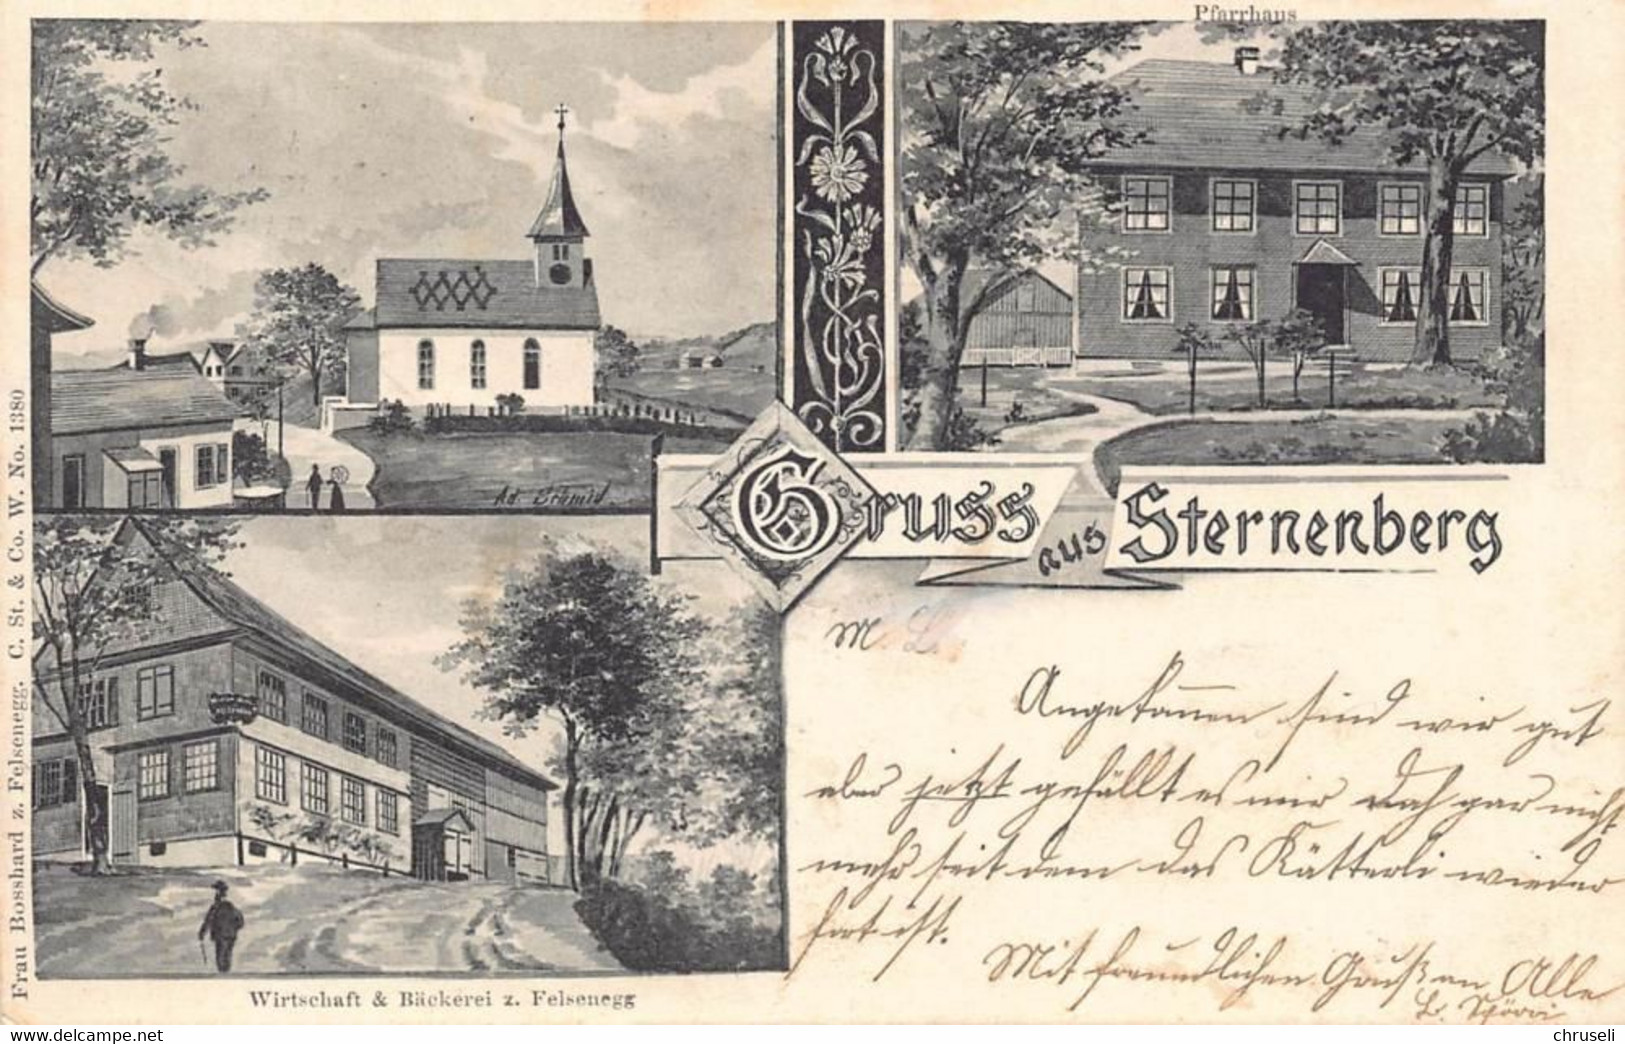 Pfarrhaus
Ad. Schmid.
Gruss
aus Sternenberg
Frau Bosshard z. Felsenegg. C. St. & Co. W. No. 1380
Wirtschaft & Bäckerei z. Felsenegg
M. L.
Angekom̄en sind wir gut
aber jetzt gefällt es mir doch gar nicht
mehr seit dem das Kätterli wieder
fort ist.
Mit freundlichen Gruß an Alle
delcampe.net
chruseli